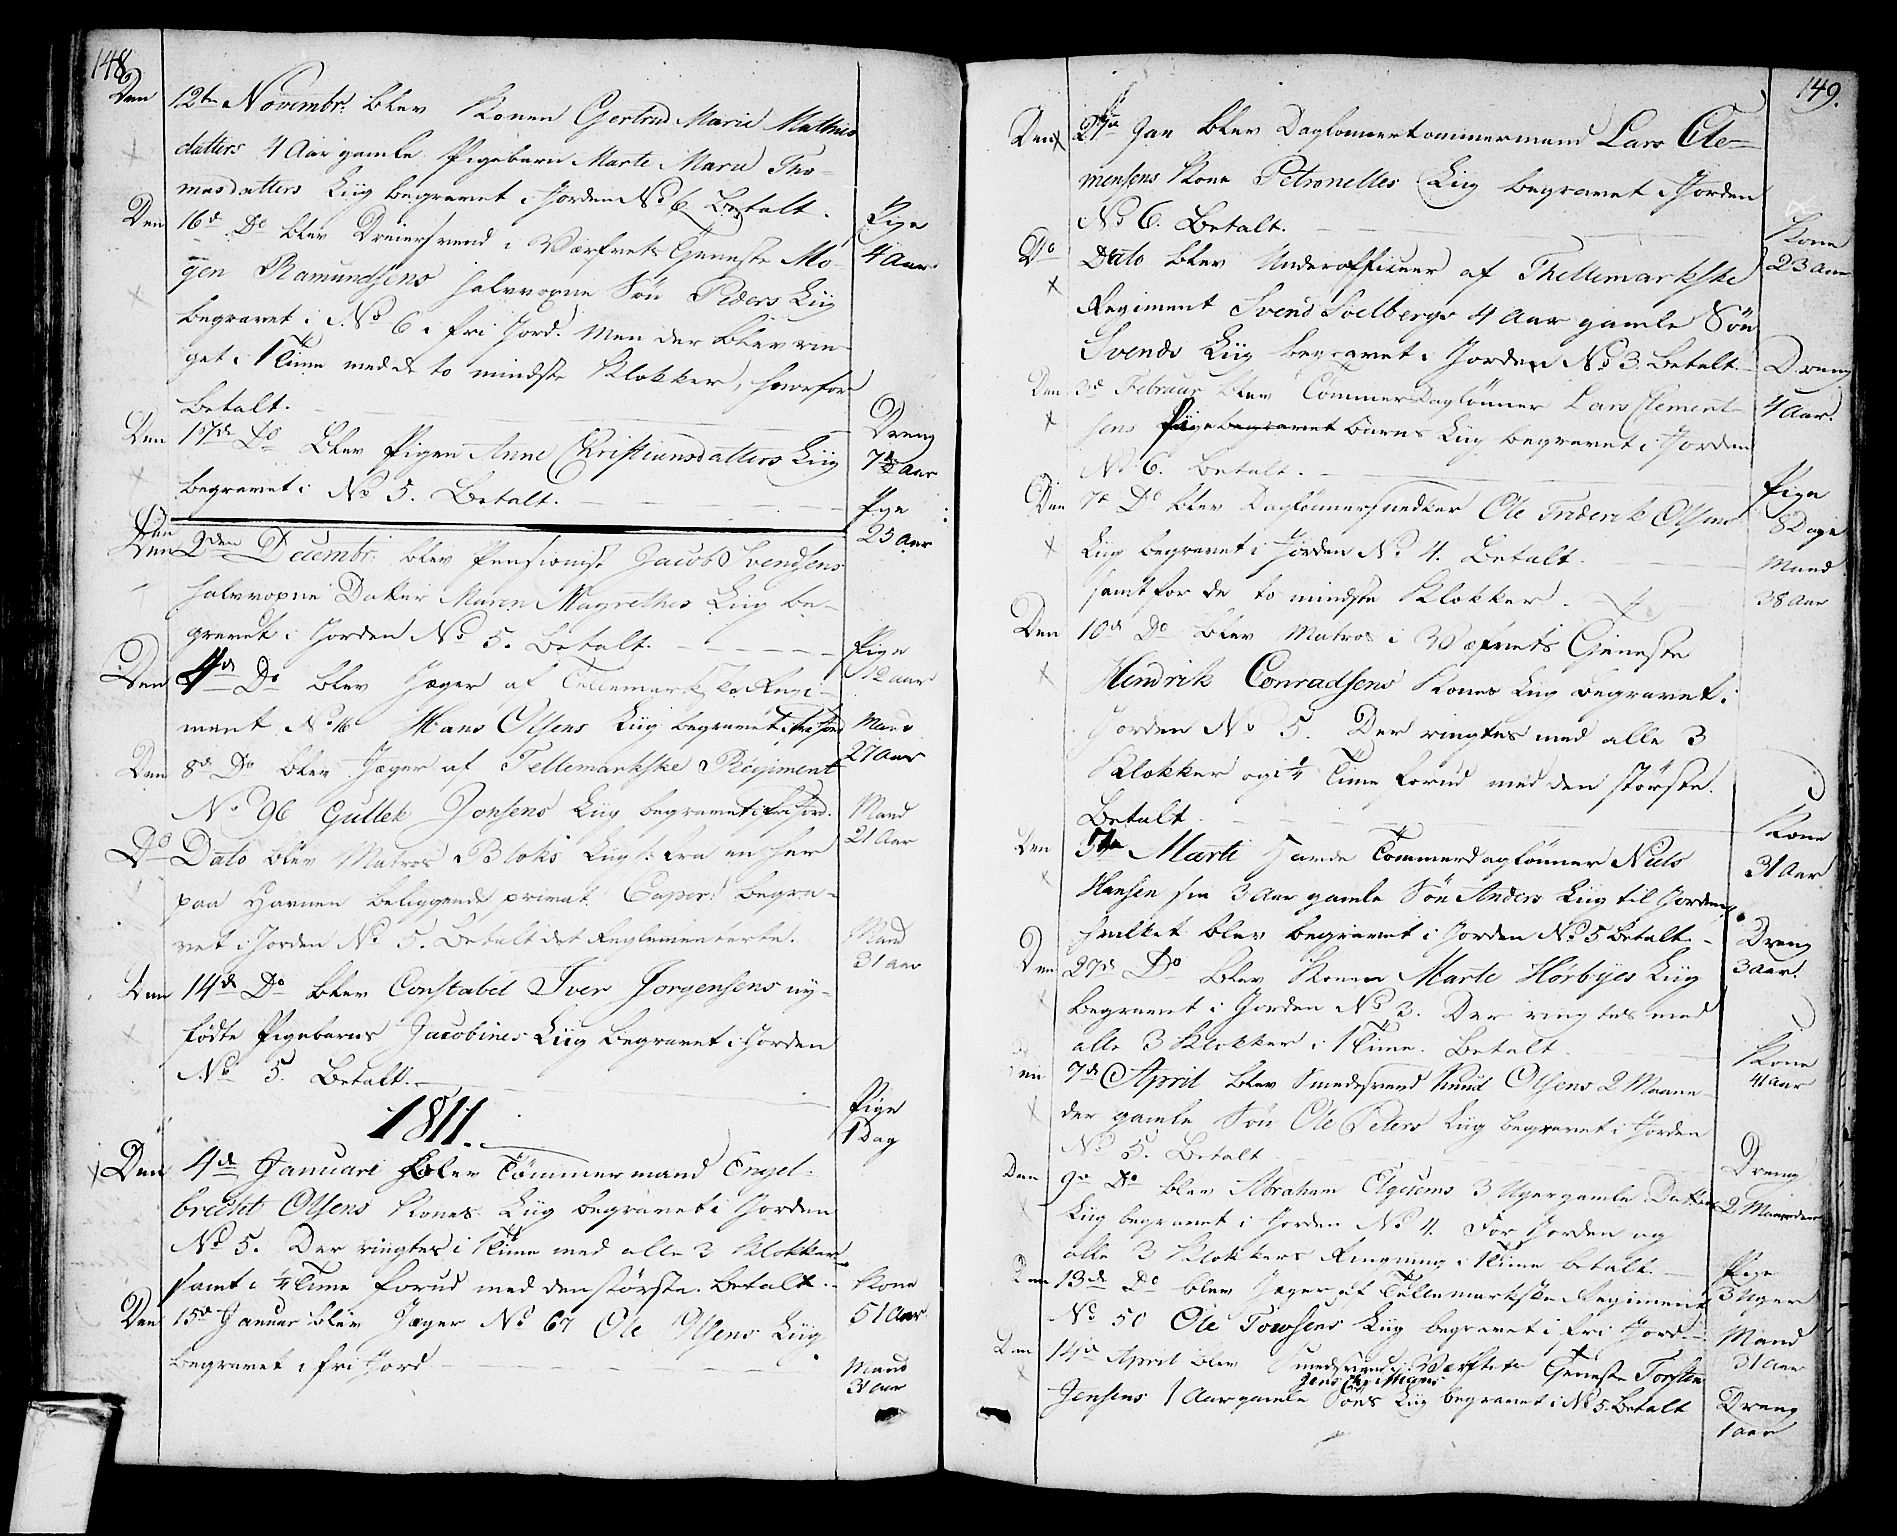 148
Den 12te Novembr. blev Konen Gertrud Maria Mathias
datters 4 Aar gamle Pigebarn Marte Maria Tho-
masdatters Liig begravet i Jorden No 6 Betalt. Pige
Den 16de Do blev Dreiersvend i Værfvets Tieneste Mo- 4 Aar
gen Ramundsens halvvoxne Søn Peders Liig
begravet i No 6 i fri Jord. Men der blev rin-
get i 1 Time med de to mindste Klokker, hvorfor
Betalt. Dreng
Den 17de Do Blev Pigen Anne Christiansdatters Liig 7½ Aar
begravet i No 5. Betalt. Pige
25 Aar
Den 2den Decembr. blev Pensionist Jacob Svendsens
halvvoxne Datter Maren Magrethes Liig be-
gravet i Jorden No 5. Betalt. Pige
Den 4de Do blev Jæger af Tellemarkske Regi- 12 aar
ment No 16 Hans Olsens Liig begravet i fri Jord Mand
27 Aar
Den 8de Do blev Jæger af Tellemarkske Regiment
No 96 Gullek Jonsens Liig begravet i fri Jord. Mand
21 Aar
Do Dato blev Matros Bloks Liig /: fra en her
paa Havnen beliggende privat Caper :/ begra-
vet i Jorden No 5. Betalt det Reglementerte. Mand
31 aar
Den 14de Do blev Constabel Iver Jørgensens ny-
fødte Pigebarns Jacobines Liig begravet i Jorden
No 5. Betalt. Pige
1 Dag
1811.
Den 4de Januari blev Tømmermand Engel-
brecht Olsens Kones Liig begravet i Jorden
No 5. Der ringtes i 1 Time med alle 3 Klokker
samt i ¼ Time forud med den største. Betalt. Kone
51 Aar
Den 15de Januar blev Jæger No 67 Ole Olsens Liig
begravet i fri Jord Mand
31 aar
149.
Den 27de Jan blev Daglønnertømmermand Lars Cle-
mensens Kone Petronelles Liig begravet i Jorden
No 6. Betalt. Kone
23 Aar
Do Dato blev Underofficeer af Thellemarkske
Regiment Svend Soelbergs 4 Aar gamle Søn
Svends Liig begravet i Jorden No 3. Betalt. Dreng
4 Aar.
Den 3de Februar blev Tømmer Daglønner Lars Clement-
sens Pigebegravet barns Liig begravet i Jorden
No 6. Betalt. Pige
8 Dage
Den 7de Do blev Daglønnersnedker Ole Friderik Olsens
Liig begravet i Jorden No 4. Betalt. Mand
samt for de to mindste Klokker. 38 Aar
Den 10de Do blev Matros i Værfvets Tieneste
Hendrik Conradsens Kones Liig begravet i
Jorden No 5. Der ringtes med alle 3
Klokker og i ¼ Time forud med den største.
Betalt. Kone
31 Aar
Den 5te Marti havde Tømmerdaglønner Niels
Hansen sin 3 Aar gamle Søn Anders Liig til Jorden,
hvilket blev begravet i Jorden No 5 Betalt. Dreng
3 Aar.
Den 27de Do blev Konen Marte Hörbyes Liig
Begravet i Jorden No 3. Der ringtes med
alle 3 Klokker i 1 Time. Betalt Kone
41 Aar
Den 7de April blev Smedesvend Knud Olsens 2 Maane-
der gamle Søn Ole Peters Liig begravet i Jorden
No 5. Betalt Dreng
2 Maaneder
Den 9de Do blev Abraham 3 Uger gamle Datters
Liig begravet i Jorden No 4. For Jorden og
alle 3 Klokkers Ringning i 1 Time betalt. Pige
3 Uger
Den 13de Do blev Jæger af Tellemarkske Regiment
No 50 Ole Liig begravet i fri Jord. Mand
31 Aar
Den 14de April blev Smedsvend i Værftets Tieneste Torsten
Jensens 1 Aar gamle Søns Liig begravet i No 5. Betalt Dreng
1 aar